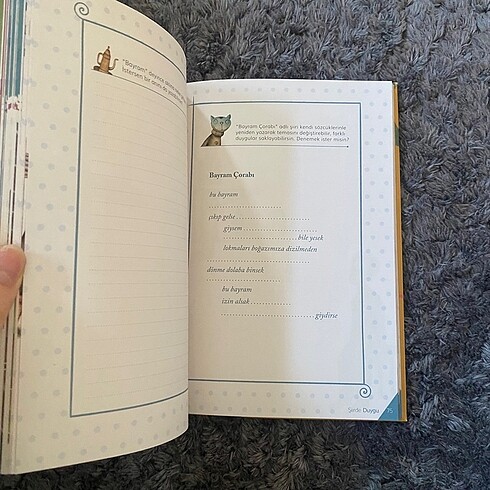 "Bayram" deyince
İstersen bir anını da
"Bayram Çorabı" adlı şiiri kendi sözcüklerinle
yeniden yazarak temasını değiştirebilir, farklı
duygular saklayabilirsin. Denemek ister misin?
Bayram Çorabı
bu bayram
..............................
çıkıp gelse ..............................
giysem ..............................
.............................. bile yesek
lokmaları boğazımıza dizilmeden
..............................
dönme dolaba binsek
..............................
bu bayram
izin alsak ................
.............................. giydirse
Şiirde Duygu 75